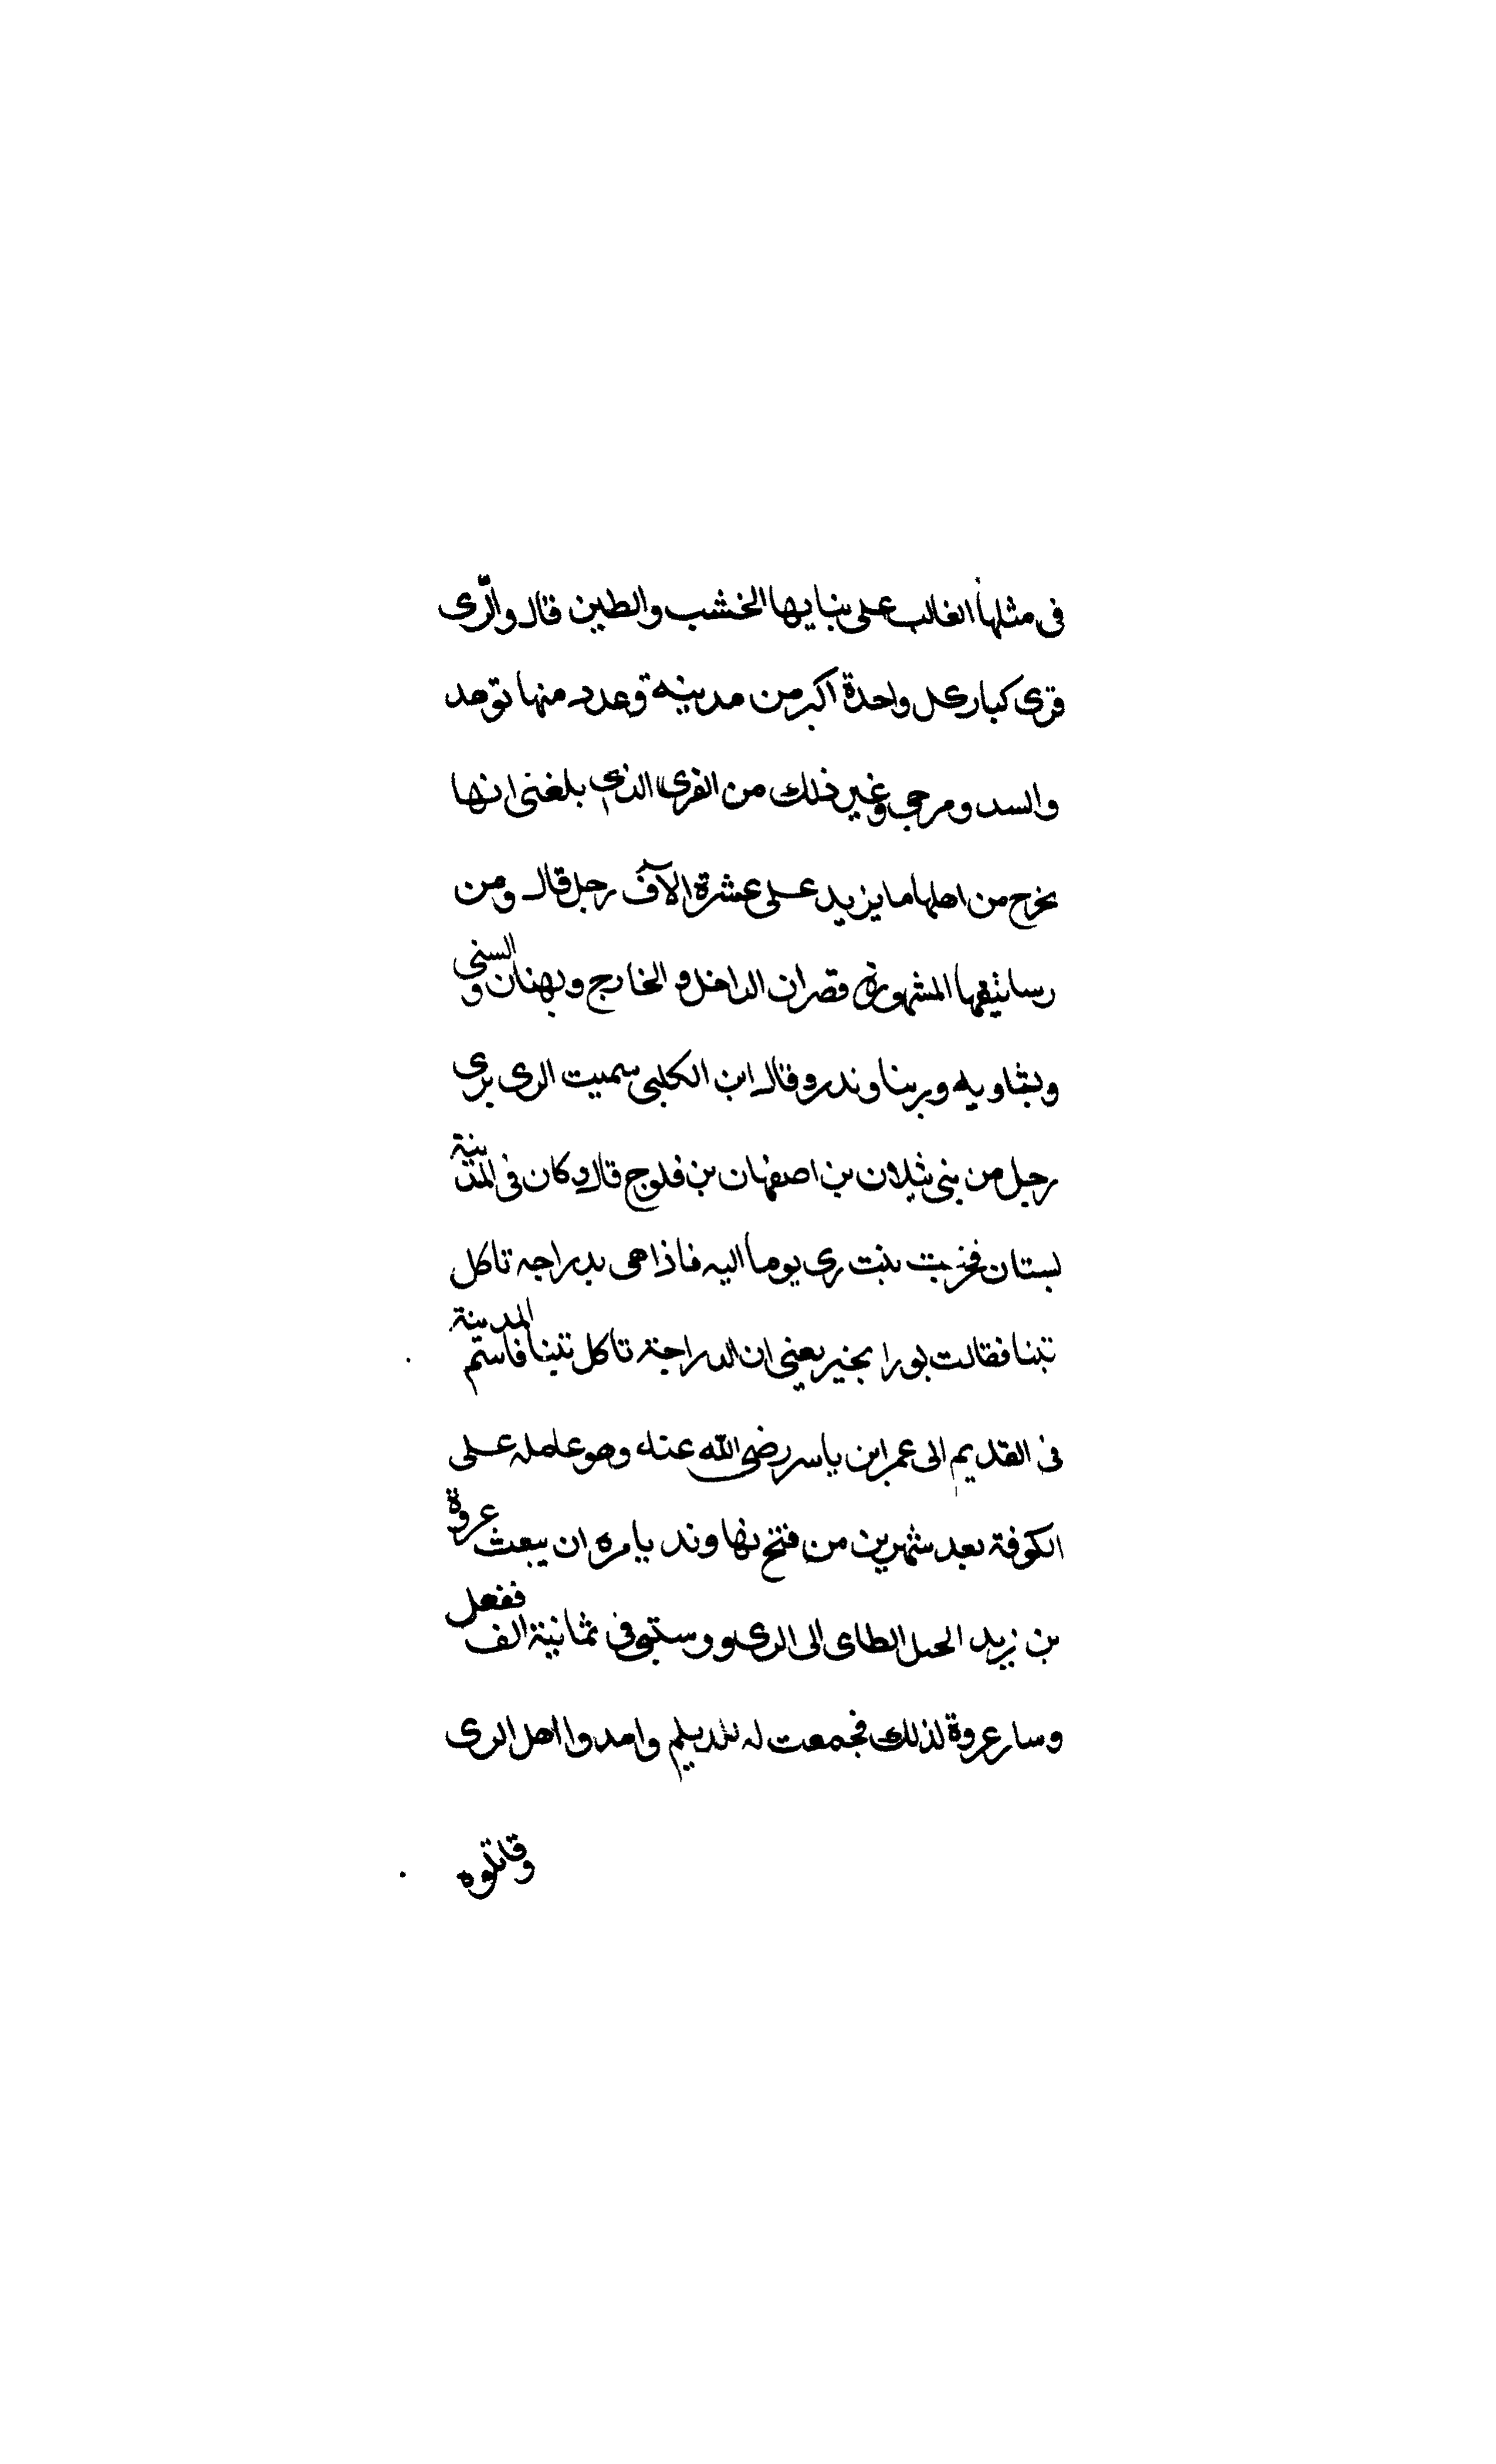 فى مثلها الغالب على بنايها الخشب والطين قال والرّى
قرى كبار كل واحدة اكبر من مدينه وعدد منها توهد
والسد ومرجبى وغير ذلك من القرى الذى بلغنى انها
يخرج من اهلها ما يزيد على عشرة الآف رجل قال ومن
رساتيقها المشهورة قصران الداخل و الخارج وبهنان والسنى
وبشاويه و وقال ابن الكلبى سميت الرى برى
رجل من بنى شيلان بن اصفهان بن فلوج قال وكان فى المدينة
بستان فخرجت بنت رى يوما اليه فاذا هى بدراجه تاكل
تينا فقالت بورا بخير يعنى ان الدراجة تاكل تينا فاسم المدينة
فى القديم الى عمر ابن ياسر رضى الله عنه وهو عامله على
الكوفة بعد شهرين من فتح نهاوند يامره ان يبعث عروة
بن زيد الحيل الطاى الى الرى ودستبى فى ثمانية الف ففعل
وسار عروة لذلك فجمعت له للديلم وامدوا اهل الرى
وقاتلوه